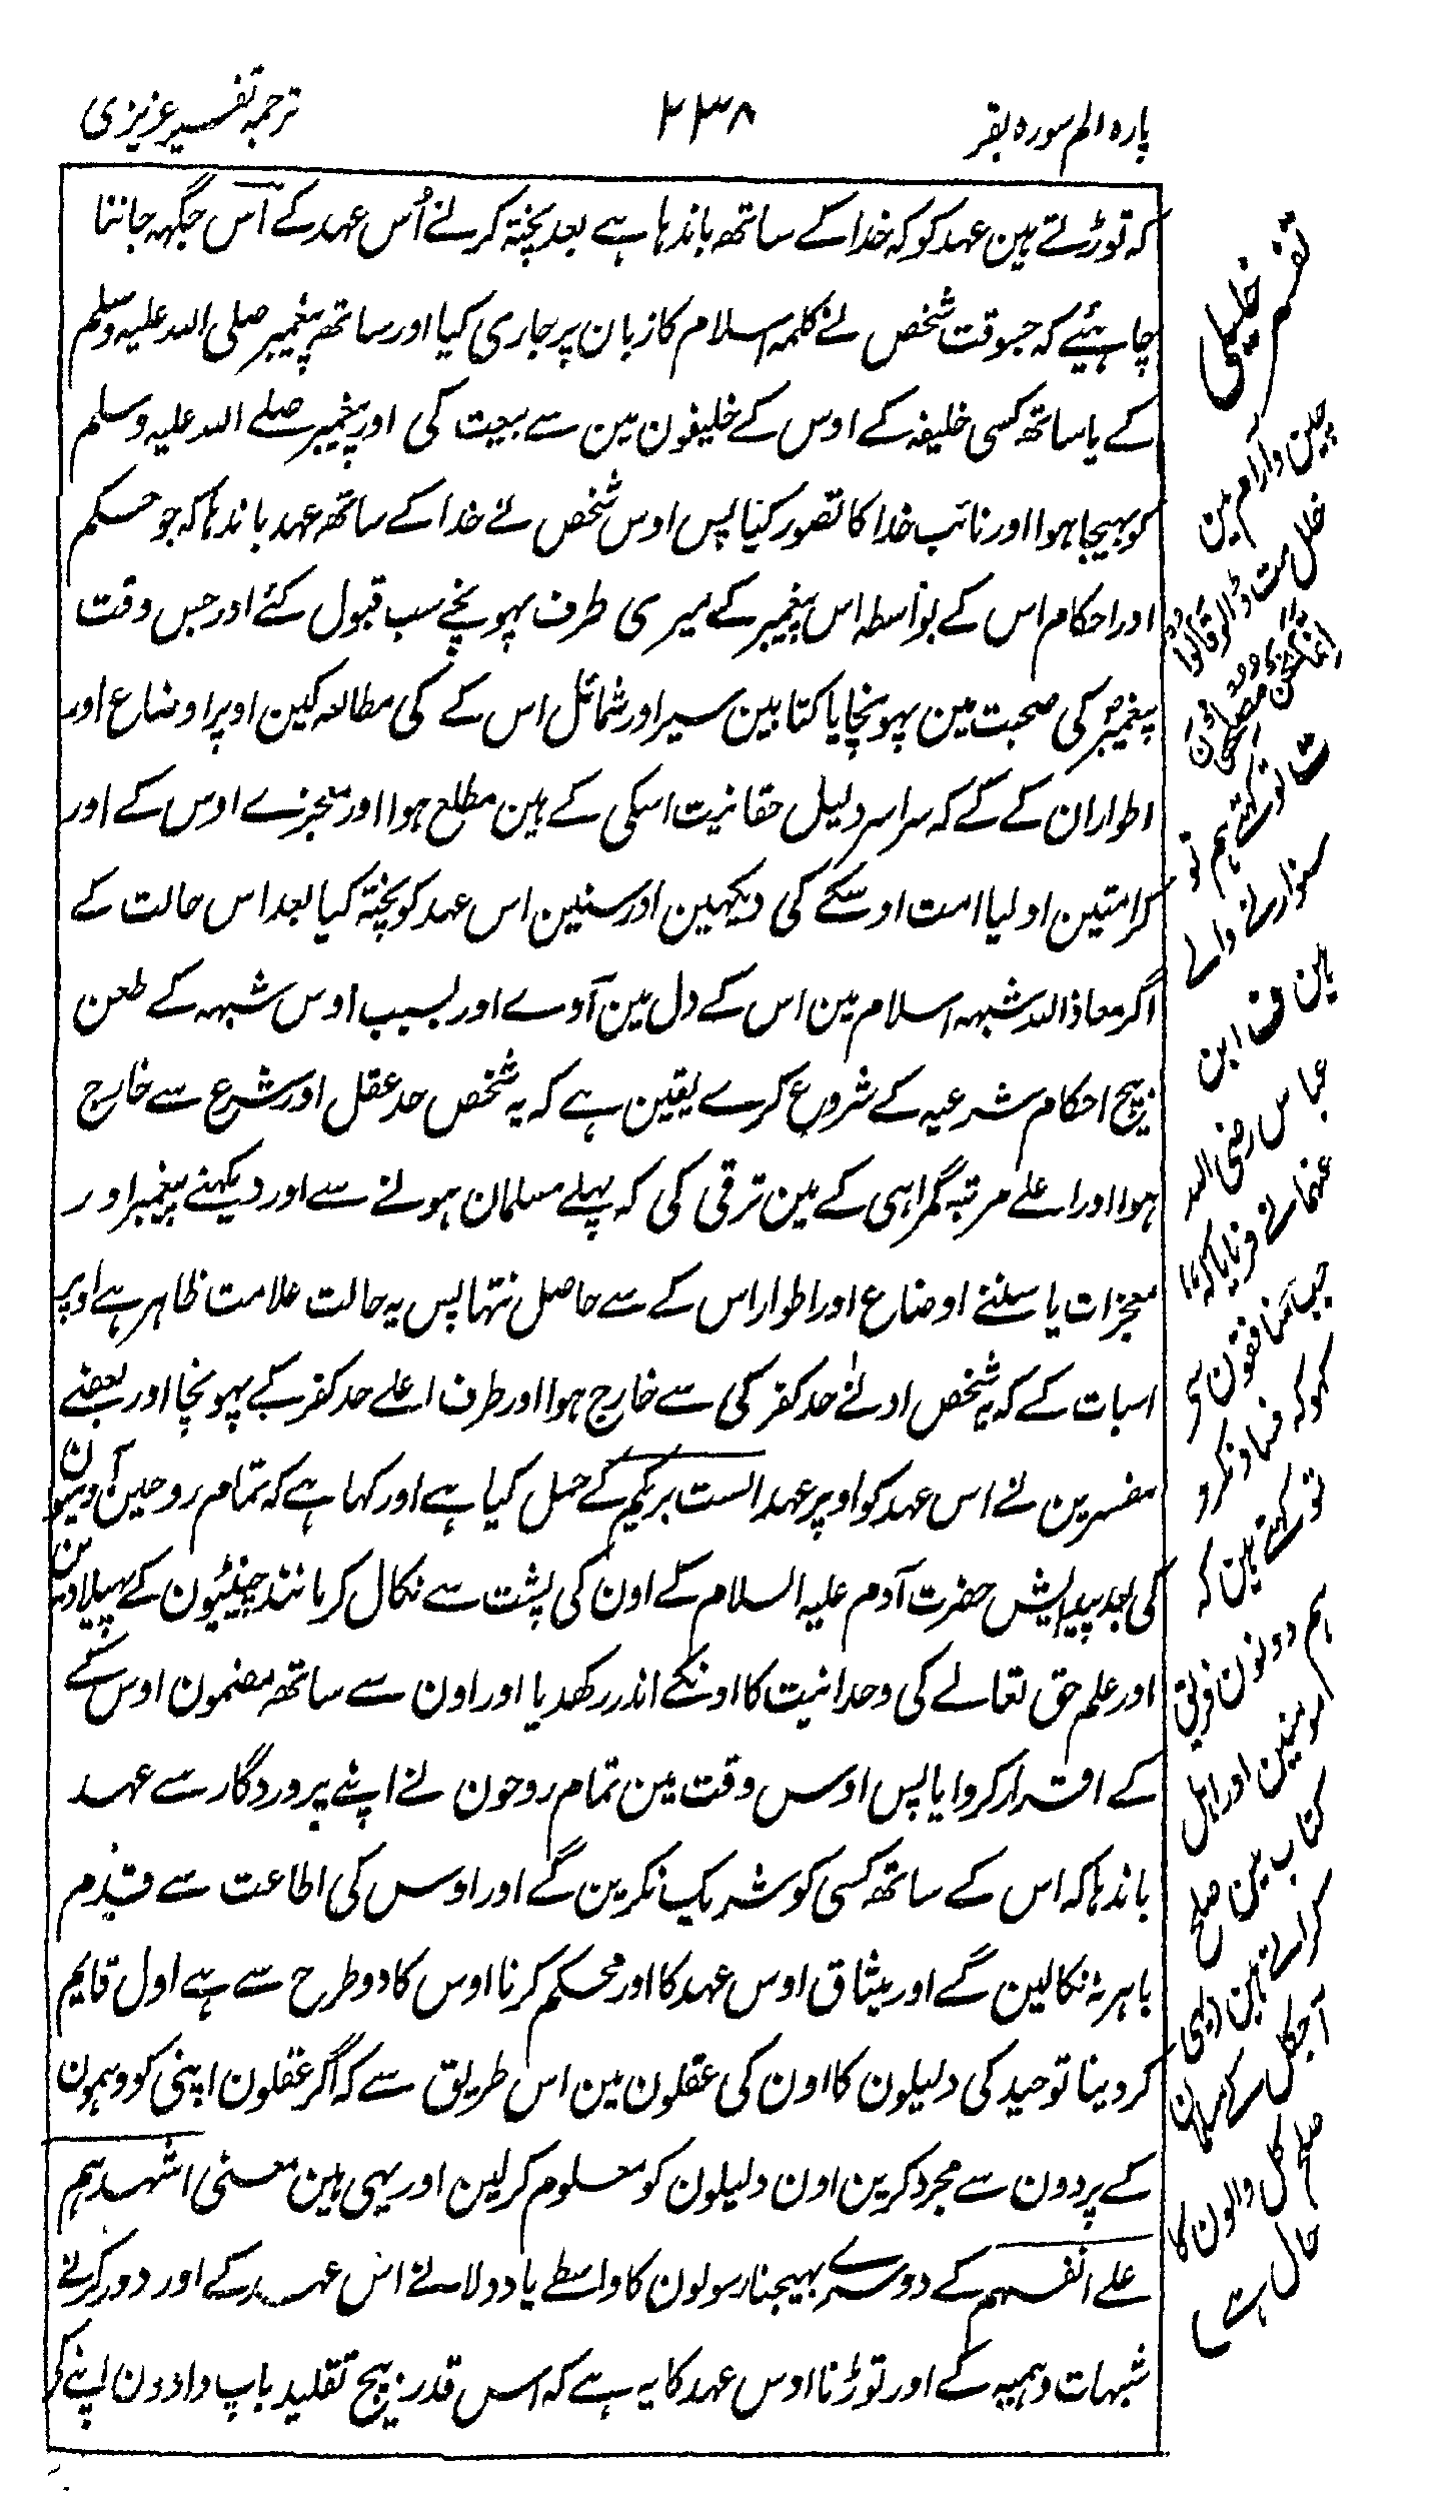 پارہ الم سورہ بقر
۲۳۸
ترجمہ تفسیر عزیزی
کہ توڑتے ہین عہد کو کہ خدا کے ساتھ باندہا ہے بعد پختہ کرنے اُس عہد کے اس جگہہ جاننا
چاہئیے کہ جسوقت شخص نے کلمہ اسلام کا زبان پر جاری کیا اور ساتھ پیغمبر صلی اللہ علیہ وسلم
کے یا ساتھ کسی خلیفہ کے اوس کے خلیفون مین سے بیعت کی اور پیغمبر صلے اللہ علیہ وسلم
کو بہیجا ہوا اور نائب خدا کا تصور کیا پس اوس شخص نے خدا کے ساتھ عہد باندہا کہ جو حکم
اور احکام اس کے بواسطہ اس پیغمبر کے میری طرف پہونچے سب قبول کئے اور جس وقت
پیغمبر کی صحبت مین پہونچا یا کتابین سیر اور شمائل اس کے کی مطالعہ کین اوپر اوضاع اور
اطوار ان کے کے کہ سراسر دلیل حقانیت اسکی کے ہین مطلع ہوا اور معجزے اوس کے اور
کرامتین اولیا امت اوسکے کی دیکہین اور سنین اس عہد کو پختہ کیا بعد اس حالت کے
اگر معاذ اللہ شبہہ اسلام مین اس کے دل مین آوے اور بسبب اوس شبہہ کے طعن
بیچ احکام شرعیہ کے شروع کرے یقین ہے کہ یہ شخص حد عقل اور شرع سے خارج
ہوا اور اعلے مرتبہ گمراہی کے مین ترقی کی کہ پہلے مسلمان ہونے سے اور دیکہنے پیغمبر اور
معجزات یا سننے اوضاع اور اطوار اس کے سے حاصل نتہا پس یہ حالت علامت ظاہر ہے اوپر
اسبات کے کہ یہ شخص ادنے حد کفر کی سے خارج ہوا اور طرف اعلے حد کفر کے پہونچا اور بعضے
مفسرین نے اس عہد کو اوپر عہد الست بربکم کے حمل کیا ہے اور کہا ہے کہ تمام روحین آدمیون
کی بعد پیدایش حضرت آدم علیہ السلام کے اون کی پشت سے نکال کر مانند چینٹیون کے پہیلا دین
اور علم حق تعالے کی وحدانیت کا اونکے اندر رکھدیا اور اون سے ساتھ مضمون اوس کے
کے اقرار کروایا پس اوس وقت مین تمام روحون نے اپنے پروردگار سے عہد
باندہا کہ اس کے ساتھ کسی کو شریک نکرین گے اور اوس کی اطاعت سے قدم
باہر نہ نکالین گے اور میثاق اوس عہد کا اور محکم کرنا اوس کا دو طرح سے ہے اول قایم
کر دینا توحید کی دلیلون کا اون کی عقلون مین اس طریق سے کہ اگر عقلون اپنی کو وہمون
کے پردون سے مجرد کرین اون دلیلون کو معلوم کر لین اور یہی ہین معنی اشہدہم
علے انفسہم کے دوسرے بہیجنا رسولون کا واسطے یاد دلانے اس عہد کے اور دور کرنے
شبہات وہمیہ کے اور توڑنا اوس عہد کا یہ ہے کہ اس قدر بیچ تقلید باپ دادون اپنے کی
تفسیر خلیلی
چین و آرام مین
خلل مت ڈالو قالوا
انما نحن مصلحون
تو کہتے ہم تو
سنوارنے والے
ہین ف ابن
عباس رضی اللہ
عنھما نے فرمایا کہ
جب منافقون سے
کہو کہ فساد نکرو
تو کہتے ہین کہ
ہم دونون فریق
مومنین اور اہل
کتاب مین صلح
کراتے ہین یہی
آجکل
صلح کل والون کا
حال ہے